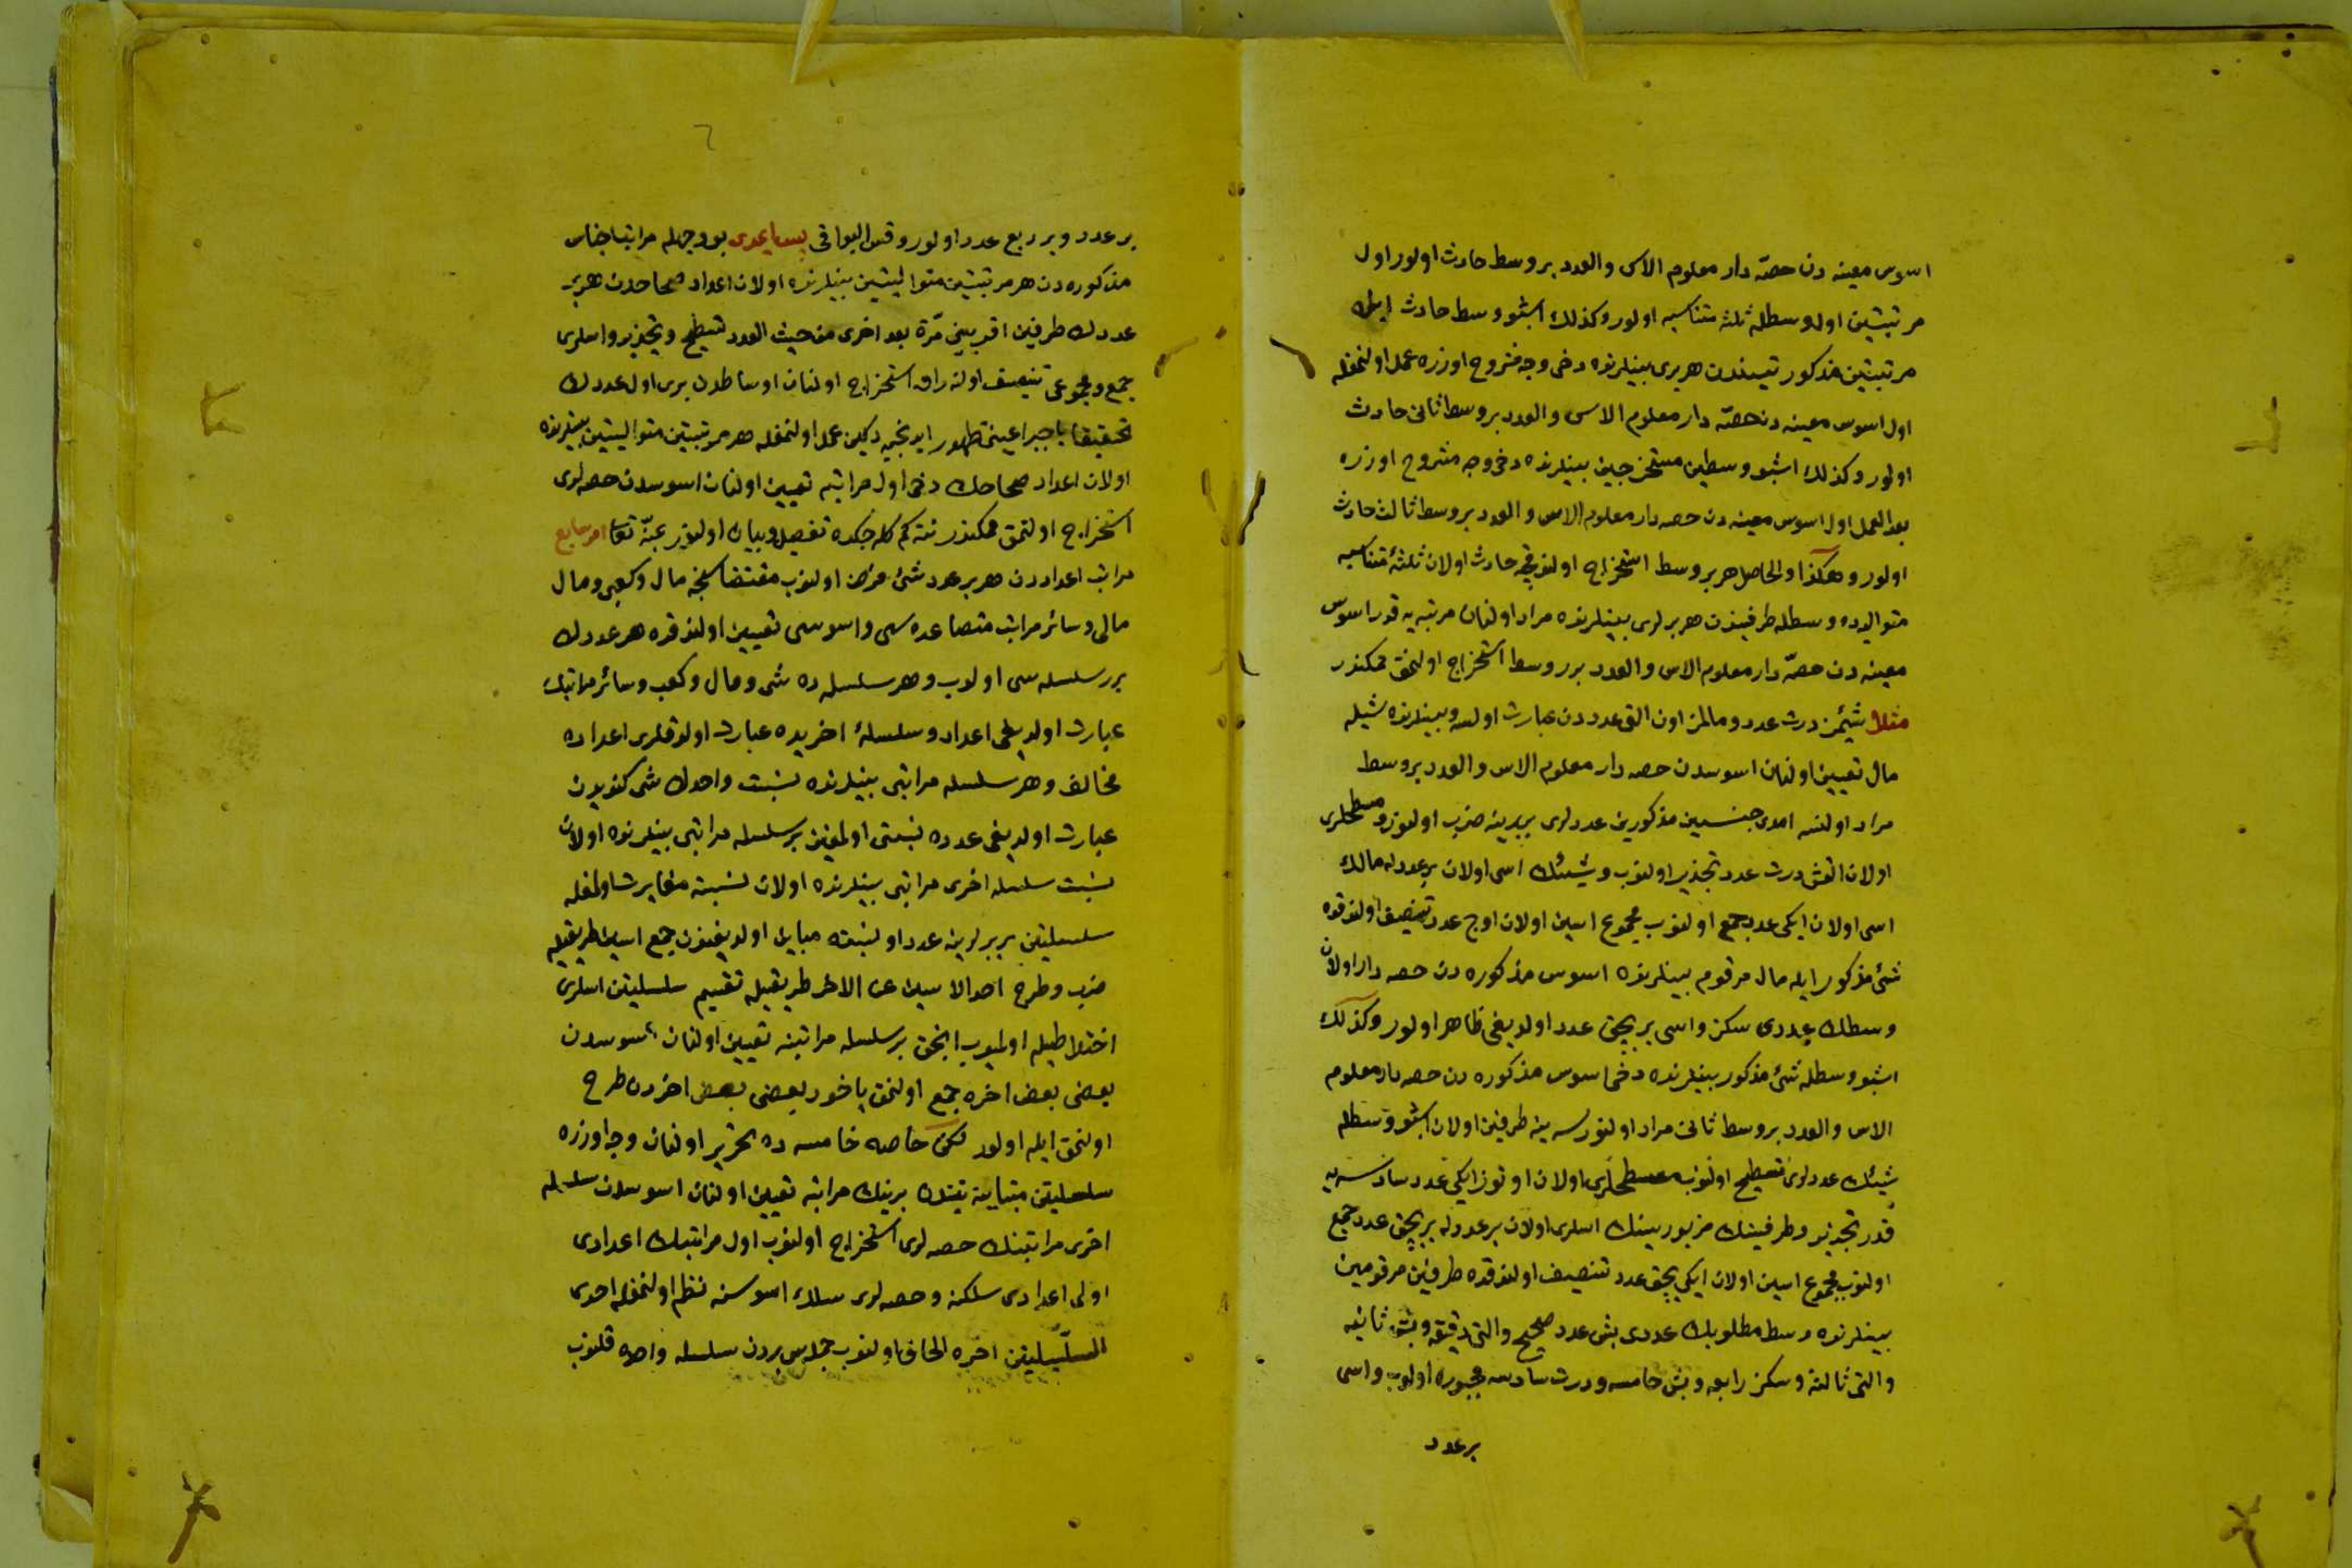 اسوس معینه دن حصّه دار معلوم الاس والعدد بر وسط حادث اولور اول
مرتبتین اول وسطله ثلثه متناسبه اولور وكذلك اشبو وسط حادث ایله
مرتبتین مذكورتیندن هر بری بینلرنده دخی وجه مشروح اوزره عمل اولنمغله
اول اسوس معینه دن حصّه دار معلوم الاس والعدد بر وسط ثانی حادث
اولور وكذلك اشبو وسطین مستخرجین بینلرنده دخی وجه مشروح اوزره
بعد العمل اول اسوس معینه دن حصه دار معلوم الاس والعدد بر وسط ثالث حادث
اولور وهكذا والحاصل هر بر وسط استخراج اولندقجه حادث اولان ثلثهٔ متناسبه
متوالیه ده وسطله طرفیندن هر برلری بینلرنده مراد اولنان مرتبه یه قدر اسوس
معینه دن حصّه دار معلوم الاس والعدد برر وسط استخراج اولنمق ممكندر
مثلا شیئمز درت عدد ومالمز اون التی عدددن عبارت اولسه وبینلرنده شیله
مال تعیین اولنان اسوسدن حصه دار معلوم الاس والعدد بر وسط
مراد اولنسه امدی جنسین مذكورین عددلری بربرینه ضرب اولنوز ومسطحلری
اولان التمش درت عدد تجذیر اولنوب وشیئك اسی اولان بر عددله مالك
اسی اولان ایكی عدد جمع اولنوب مجموع اسین اولان اوج عدد تنصیف اولندقده
شئ مذكور ایله مال مرقوم بینلرنده اسوس مذكوره دن حصه دار اولان
وسطك عددی سكز واسی بر بچق عدد اولدیغی ظاهر اولور وكذلك
اشبو وسطله شئ مذكور بینلرنده دخی اسوس مذكوره دن حصه دار معلوم
الاس والعدد بر وسط ثانی مراد اولنورسه ینه طرفین اولان اشبو وسطله
شیئك عددلری تسطیح اولنوب مسطحلری اولان اوتوز ایكی عدد سادسه یه
قدر تجذیر وطرفینك مزبورینك اسلری اولان بر عددله بر بچق عدد جمع
اولنوب مجموع اسین اولان ایكی بچق عدد تنصیف اولندقده طرفین مرقومین
بینلرنده وسط مطلوبك عددی بش عدد صحیح والتی دقیقه وبش ثانیه
والتی ثالثه وسكز رابعه وبش خامسه ودرت سادسه مجبوره اولوب واسی
بر عدد
بر عدد وبر ربع عدد اولور وقس البواقی پس ایمدی بو وجهله مراتب اجناس
مذكوره دن هر مرتبتین متوالیتین بینلرنده اولان اعداد صحاحدن هر بر
عددك طرفین اقربینی مرّة بعد اخری من حیث العدد تسطیح وتجذیر واسلری
جمع ومجموعی تنصیف اولنه رق استخراج اولنان اوساطدن بری اول عددك
تحقیقا یا جبرا عینی ظهور ایدنجیه دكین عمل اولنمغله هر مرتبتین متوالیتین بینلرنده
اولان اعداد صحاحك دخی اول مراتبه تعیین اولنان اسوسدن حصه لری
استخراج اولنمق ممكندر نته كم كله جكده تفصیل وبیان اولنور بمنّه تعالی امر سابع
مراتب اعداددن هر بر عدد شئ فرض اولنوب مقتضاسنجه مال وكعبی ومال
مالی وسائر مراتب متصاعده سی واسوسی تعیین اولندقده هر عددك
برر سلسله سی اولوب وهر سلسله ده شی ومال وكعب وسائر مراتبك
عبارت اولدیغی اعداد وسلسلهٔ اخریده عبارت اولدقلری اعداده
مخالف وهر سلسله مراتبی بینلرنده نسبت واحدك شی كندیدن
عبارت اولدیغی عدده نسبتی اولمغین بر سلسله مراتبی بینلرنده اولان
نسبت سلسله اخری مراتبی بینلرنده اولان نسبته مغایرت اولمغله
سلسلتین بربرلرینه عددا ونسبته مباین اولدیغندن جمع اسین طریقیله
ضرب وطرح احد الاسین عن الاخر طریقیله تقسیم سلسلتین اسلری
اختلاطیله اولمیوب انجق بر سلسله مراتبنه تعیین اولنان اسوسدن
بعضی بعض اخره جمع اولنمق یاخود بعضی بعض اخردن طرح
اولنمق ایله اولور لكن خاصه خامسه ده تحریر اولنان وجه اوزره
سلسلتین متباینتینك برینك مراتبه تعیین اولنان اسوسدن سلسله
اخری مراتبنك حصه لری استخراج اولنوب اول مراتبك اعدادی
اولی اعدادی سلكنه وحصه لری سلك اسوسنه نظم اولنمغله احدی
السلسلتین اخره الحاق اولنوب جمله سی بردن سلسله واحده قلنوب